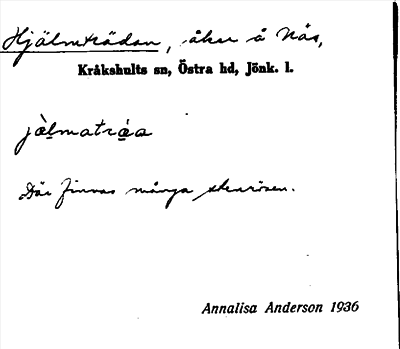 Hjälmträdan, åker å Nås,
Kråkshults sn, Östra hd, Jönk. l.
jàlmatráa
Där finnas många stenrösen.
Annalisa Anderson 1936